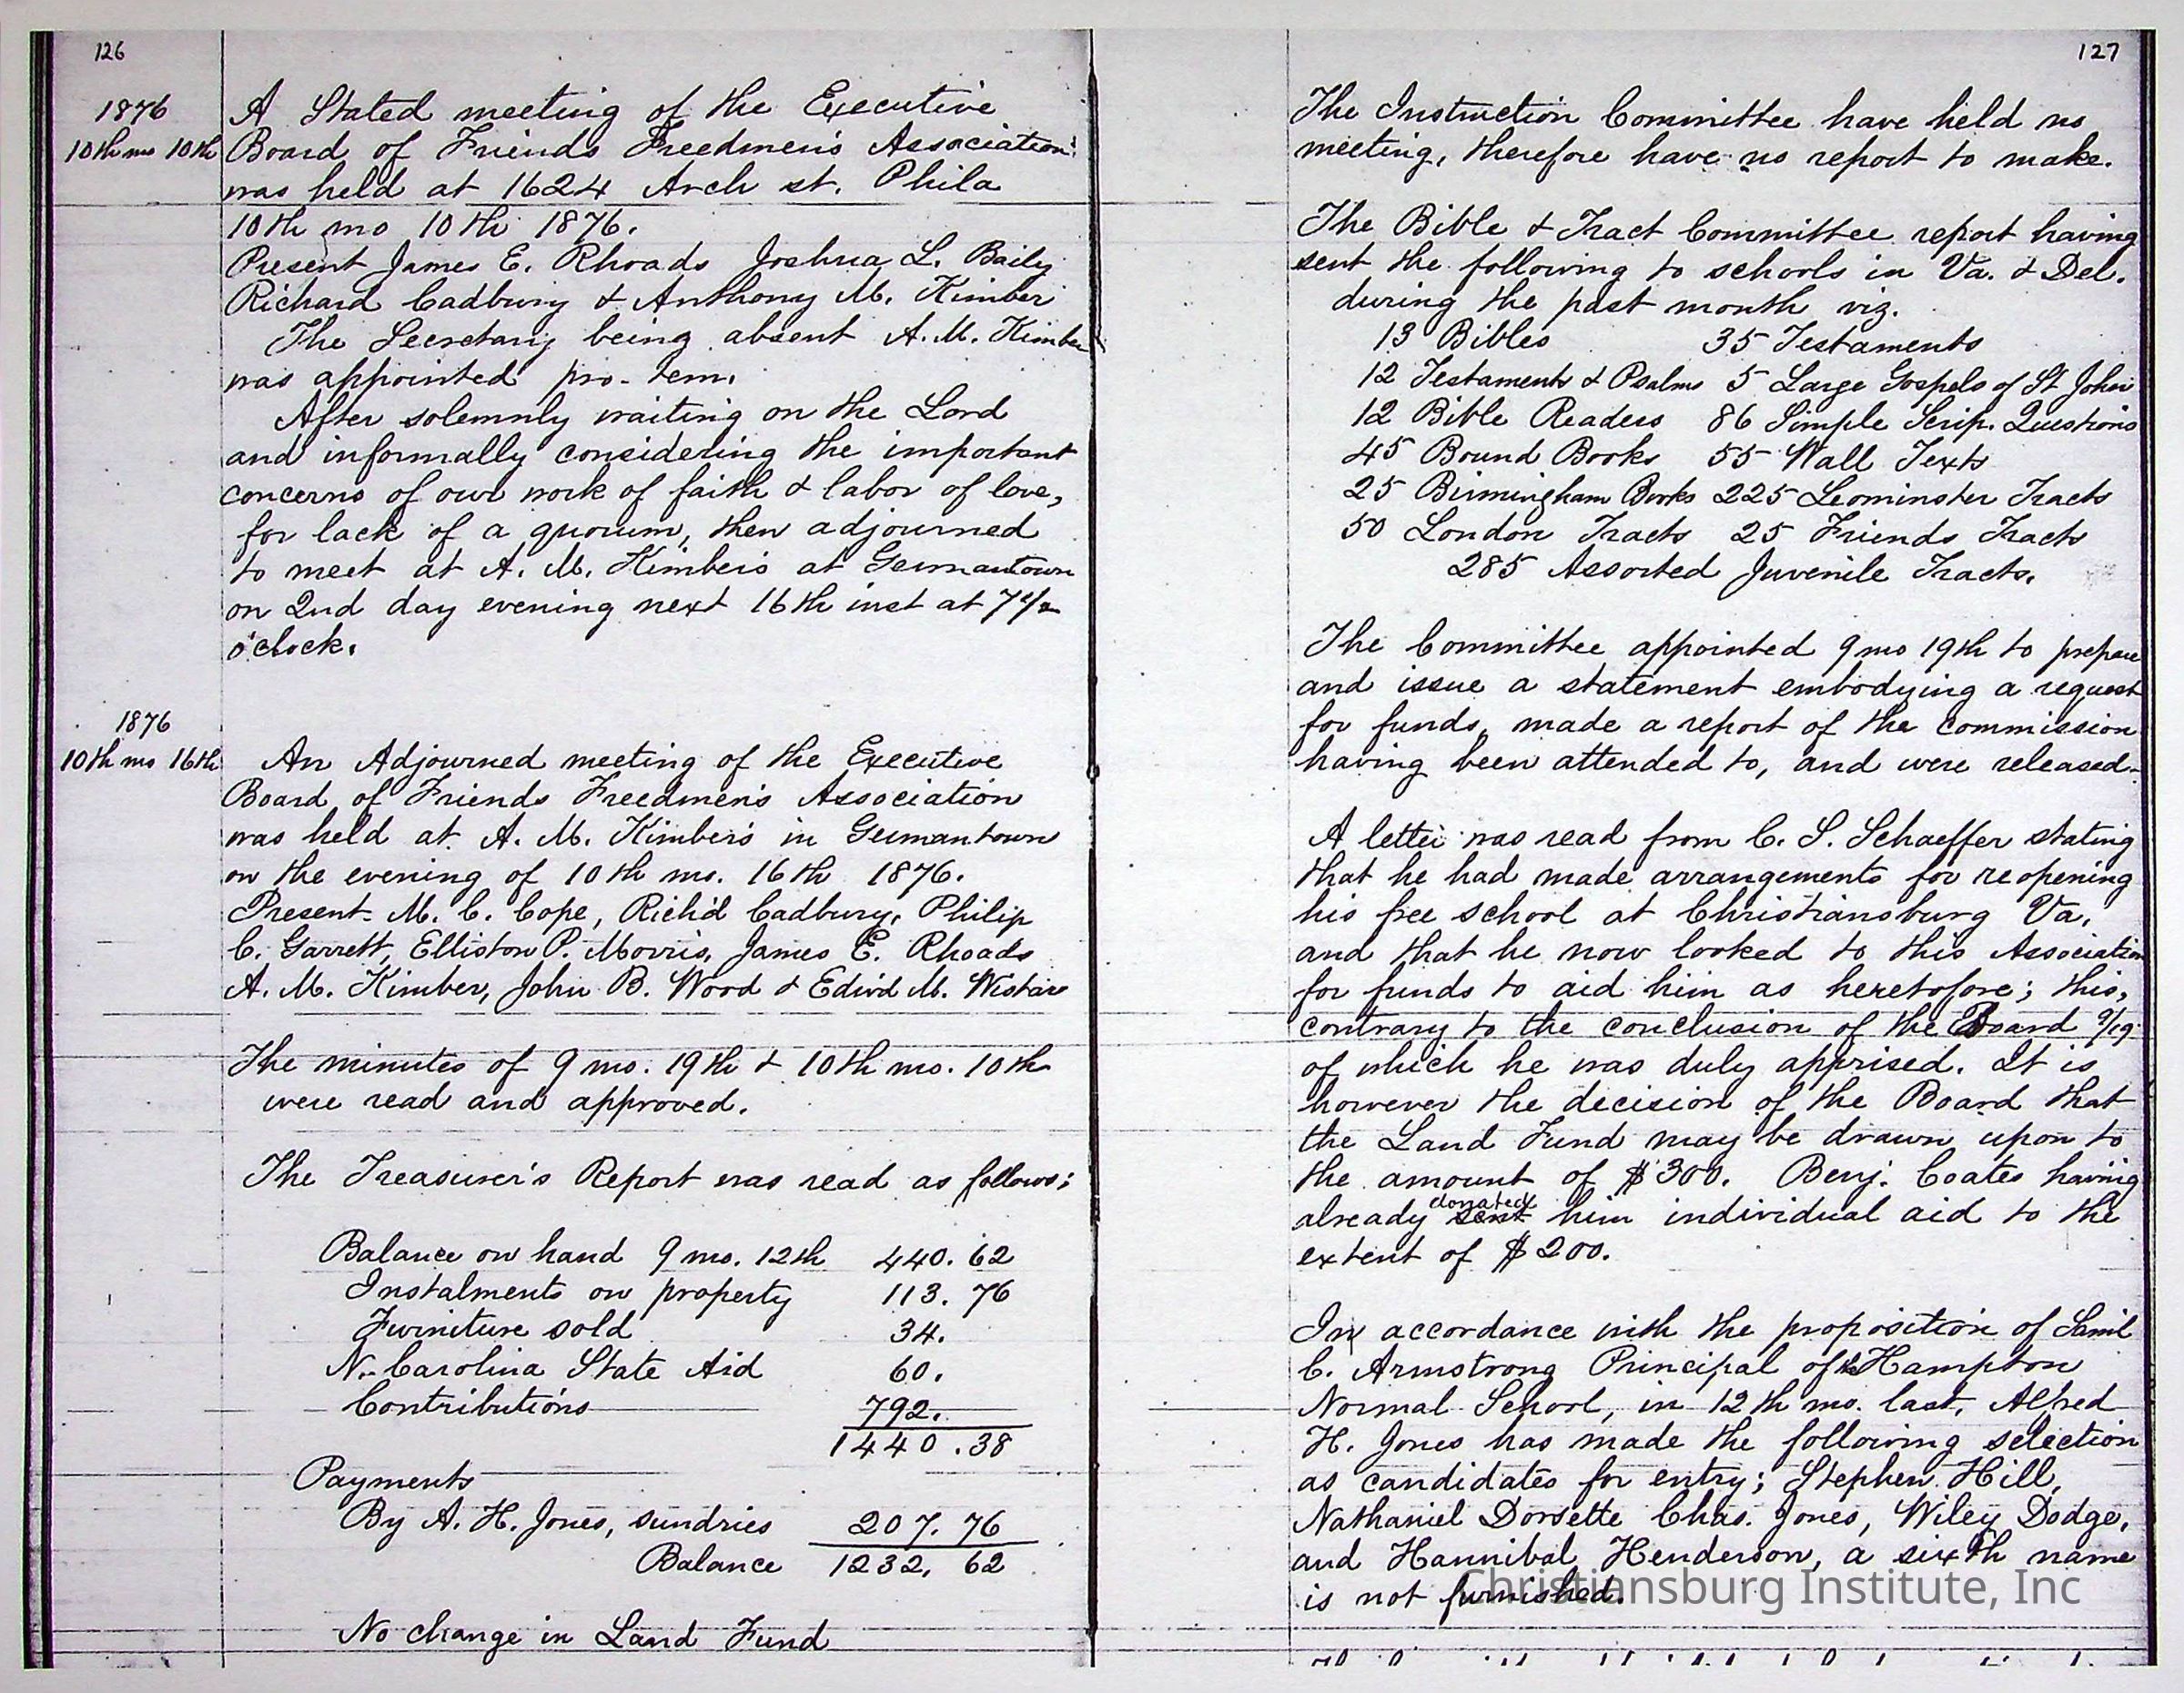 126
1876
10th mo 10th
A Stated meeting of the Executive
Board of Friends Freedmen's Association
was held at 1624 Arch st. Phila
10th mo 10th 1876.
Present James E. Rhoads Joshua L. Baily
Richard Cadbury & Anthony M. Kimber
The Secretary being absent A. M. Kimber
was appointed pro-tem.
After solemnly waiting on the Lord
and informally considering the important
concerns of our work of faith & labor of love,
for lack of a quorum, then adjourned
to meet at A. M. Kimber's at Germantown
on 2nd day evening next 16th inst at 7 1/2
o'clock.
1876
10th mo 16th
An Adjourned meeting of the Executive
Board of Friends Freedmen's Association
was held at A. M. Kimber's in Germantown
on the evening of 10th mo. 16th 1876.
Present- M. C. Cope, Rich'd Cadbury, Philip
C. Garrett, Elliston P. Morris, James E. Rhoads
A. M. Kimber, John B. Wood & Edw'd M. Wistar
The minutes of 9 mo. 19th & 10th mo. 10th
were read and approved.
The Treasurer's Report was read as follows;
Balance on hand 9 mo. 12th 440. 62
Instalments on property 113. 76
Furniture sold 34.
N. Carolina State Aid 60.
Contributions 792.
1440.38
Payments
By A. H. Jones, sundries 207. 76
Balance 1232. 62
No change in Land Fund
127
The Instruction Committee have held no
meeting, therefore have no report to make.
The Bible & Tract Committee report having
sent the following to schools in Va. & Del.
during the past month viz.
13 Bibles 35 Testaments
12 Testaments & Psalms 5 Large Gospels of St John
12 Bible Readers 86 Simple Scrip. Questions
45 Bound Books 55 Wall Texts
25 Birmingham Books 225 Leominster Tracts
50 London Tracts 25 Friends Tracts
285 Assorted Juvenile Tracts.
The Committee appointed 9 mo 19th to prepare
and issue a statement embodying a request
for funds, made a report of the commission
having been attended to, and were released.
A letter was read from C. S. Schaeffer stating
that he had made arrangements for reopening
his free school at Christiansburg Va,
and that he now looked to this Association
for funds to aid him as heretofore; this,
contrary to the conclusion of the Board 9/19
of which he was duly apprised. It is
however the decision of the Board that
the Land Fund may be drawn upon to
the amount of $300. Benj. Coates having
donated
already sent him individual aid to the
extent of $200.
In accordance with the proposition of Sam'l
C. Armstrong Principal of the Hampton
Normal School, in 12th mo. last, Alfred
H. Jones has made the following selection
as candidates for entry; Stephen Hill,
Nathaniel Dorsette Chas. Jones, Wiley Dodge,
and Hannibal Henderson, a sixth name
is not furnished.
Christiansburg Institute, Inc